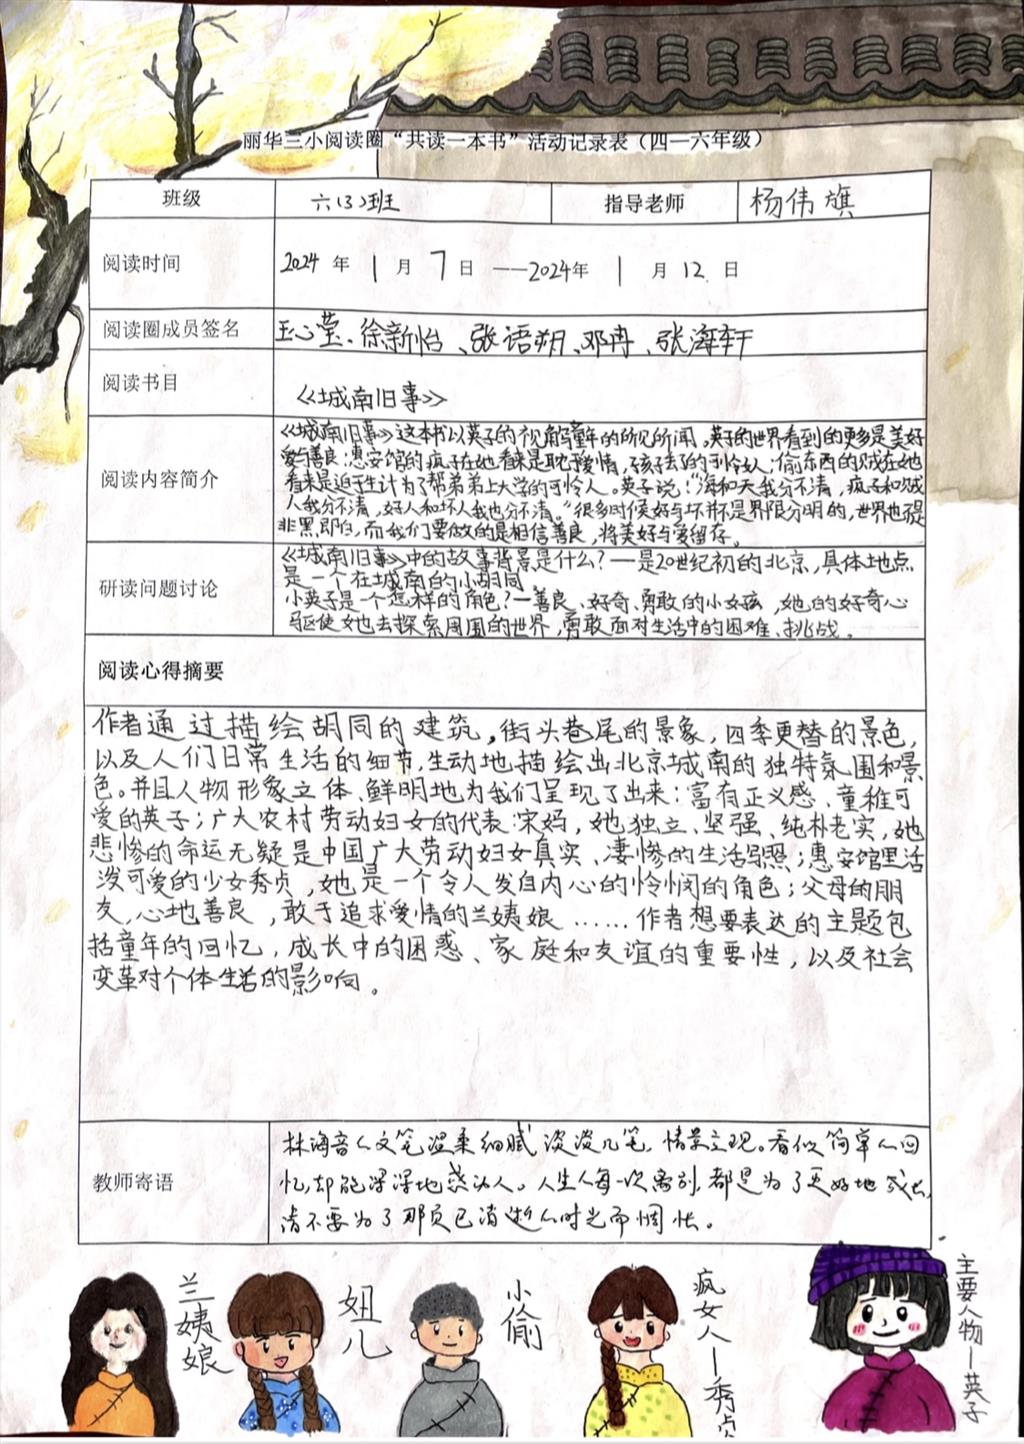 丽华三小阅读圈“共读一本书”活动记录表（四—六年级）
班级 六(3)班 指导老师 杨伟旗
阅读时间 2024 年 1 月 7 日 ——2024年 1 月 12 日
阅读圈成员签名 王心莹、徐新怡、张语朔、邓冉、张海轩
阅读书目 《城南旧事》
阅读内容简介
《城南旧事》这本书以英子的视角写童年的所见所闻。英子的世界看到的更多是美好
爱与善良:惠安馆的疯子在她看来是耽于爱情,孩子丢了的可怜人;偷东西的贼在她
看来是迫于生计为了帮弟弟上大学的可怜人。英子说:“海和天我分不清,疯子和贼
人我分不清,好人和坏人我也分不清。”很多时候好与坏并不是界限分明的,世界也不是
非黑即白,而我们要做的是相信善良,将美好与爱留存。
研读问题讨论
《城南旧事》中的故事背景是什么?—是20世纪初的北京,具体地点
是一个在城南的小胡同
小英子是一个怎样的角色?—善良、好奇、勇敢的小女孩,她的好奇心
驱使她去探索周围的世界,勇敢面对生活中的困难、挑战。
阅读心得摘要
作者通过描绘胡同的建筑,街头巷尾的景象,四季更替的景色,
以及人们日常生活的细节,生动地描绘出北京城南的独特氛围和景
色。并且人物形象立体、鲜明地为我们呈现了出来:富有正义感、童稚可
爱的英子;广大农村劳动妇女的代表:宋妈,她独立、坚强、纯朴老实,她
悲惨的命运无疑是中国广大劳动妇女真实、凄惨的生活写照;惠安馆里活
泼可爱的少女秀贞,她是一个令人发自内心的怜悯的角色;父母的朋
友,心地善良,敢于追求爱情的兰姨娘……作者想要表达的主题包
括童年的回忆,成长中的困惑、家庭和友谊的重要性,以及社会
变革对个体生活的影响。
教师寄语
林海音的文笔温柔细腻 淡淡几笔,情景立现。看似简单的回
忆,却能深深地感动人。人生的每一次离别,都是为了更好地成长,
请不要为了那员已消逝的时光而惆怅。
兰姨娘
妞儿
小偷
疯女人—秀贞
主要人物—英子